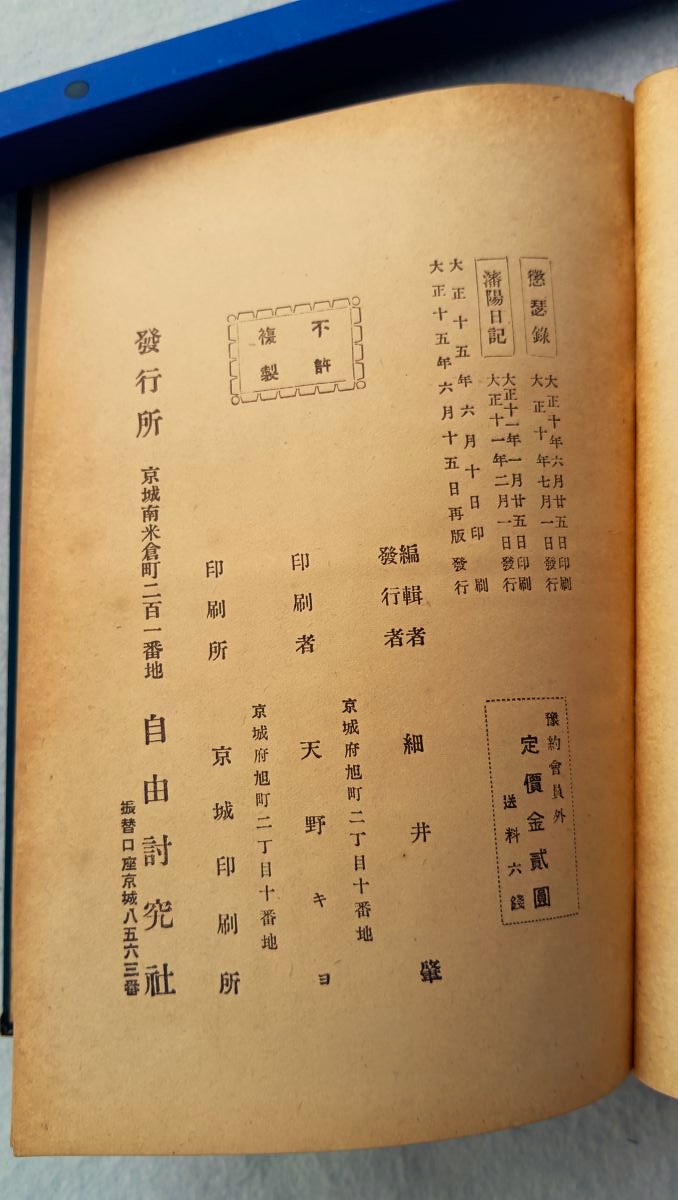 懲毖錄
大正十年六月廿五日印刷
大正十年七月一日發行
瀋陽日記
大正十一年一月廿五日印刷
大正十一年二月一日發行
大正十五年六月十日印刷
大正十五年六月十五日再版發行
豫約會員外
定價金貳圓
送料六錢
編輯者
發行者
細井肇
不許
複製
京城府旭町二丁目十番地
印刷者
天野キヨ
京城府旭町二丁目十番地
印刷所
京城印刷所
發行所
京城南米倉町二百一番地
自由討究社
振替口座京城八五六三番